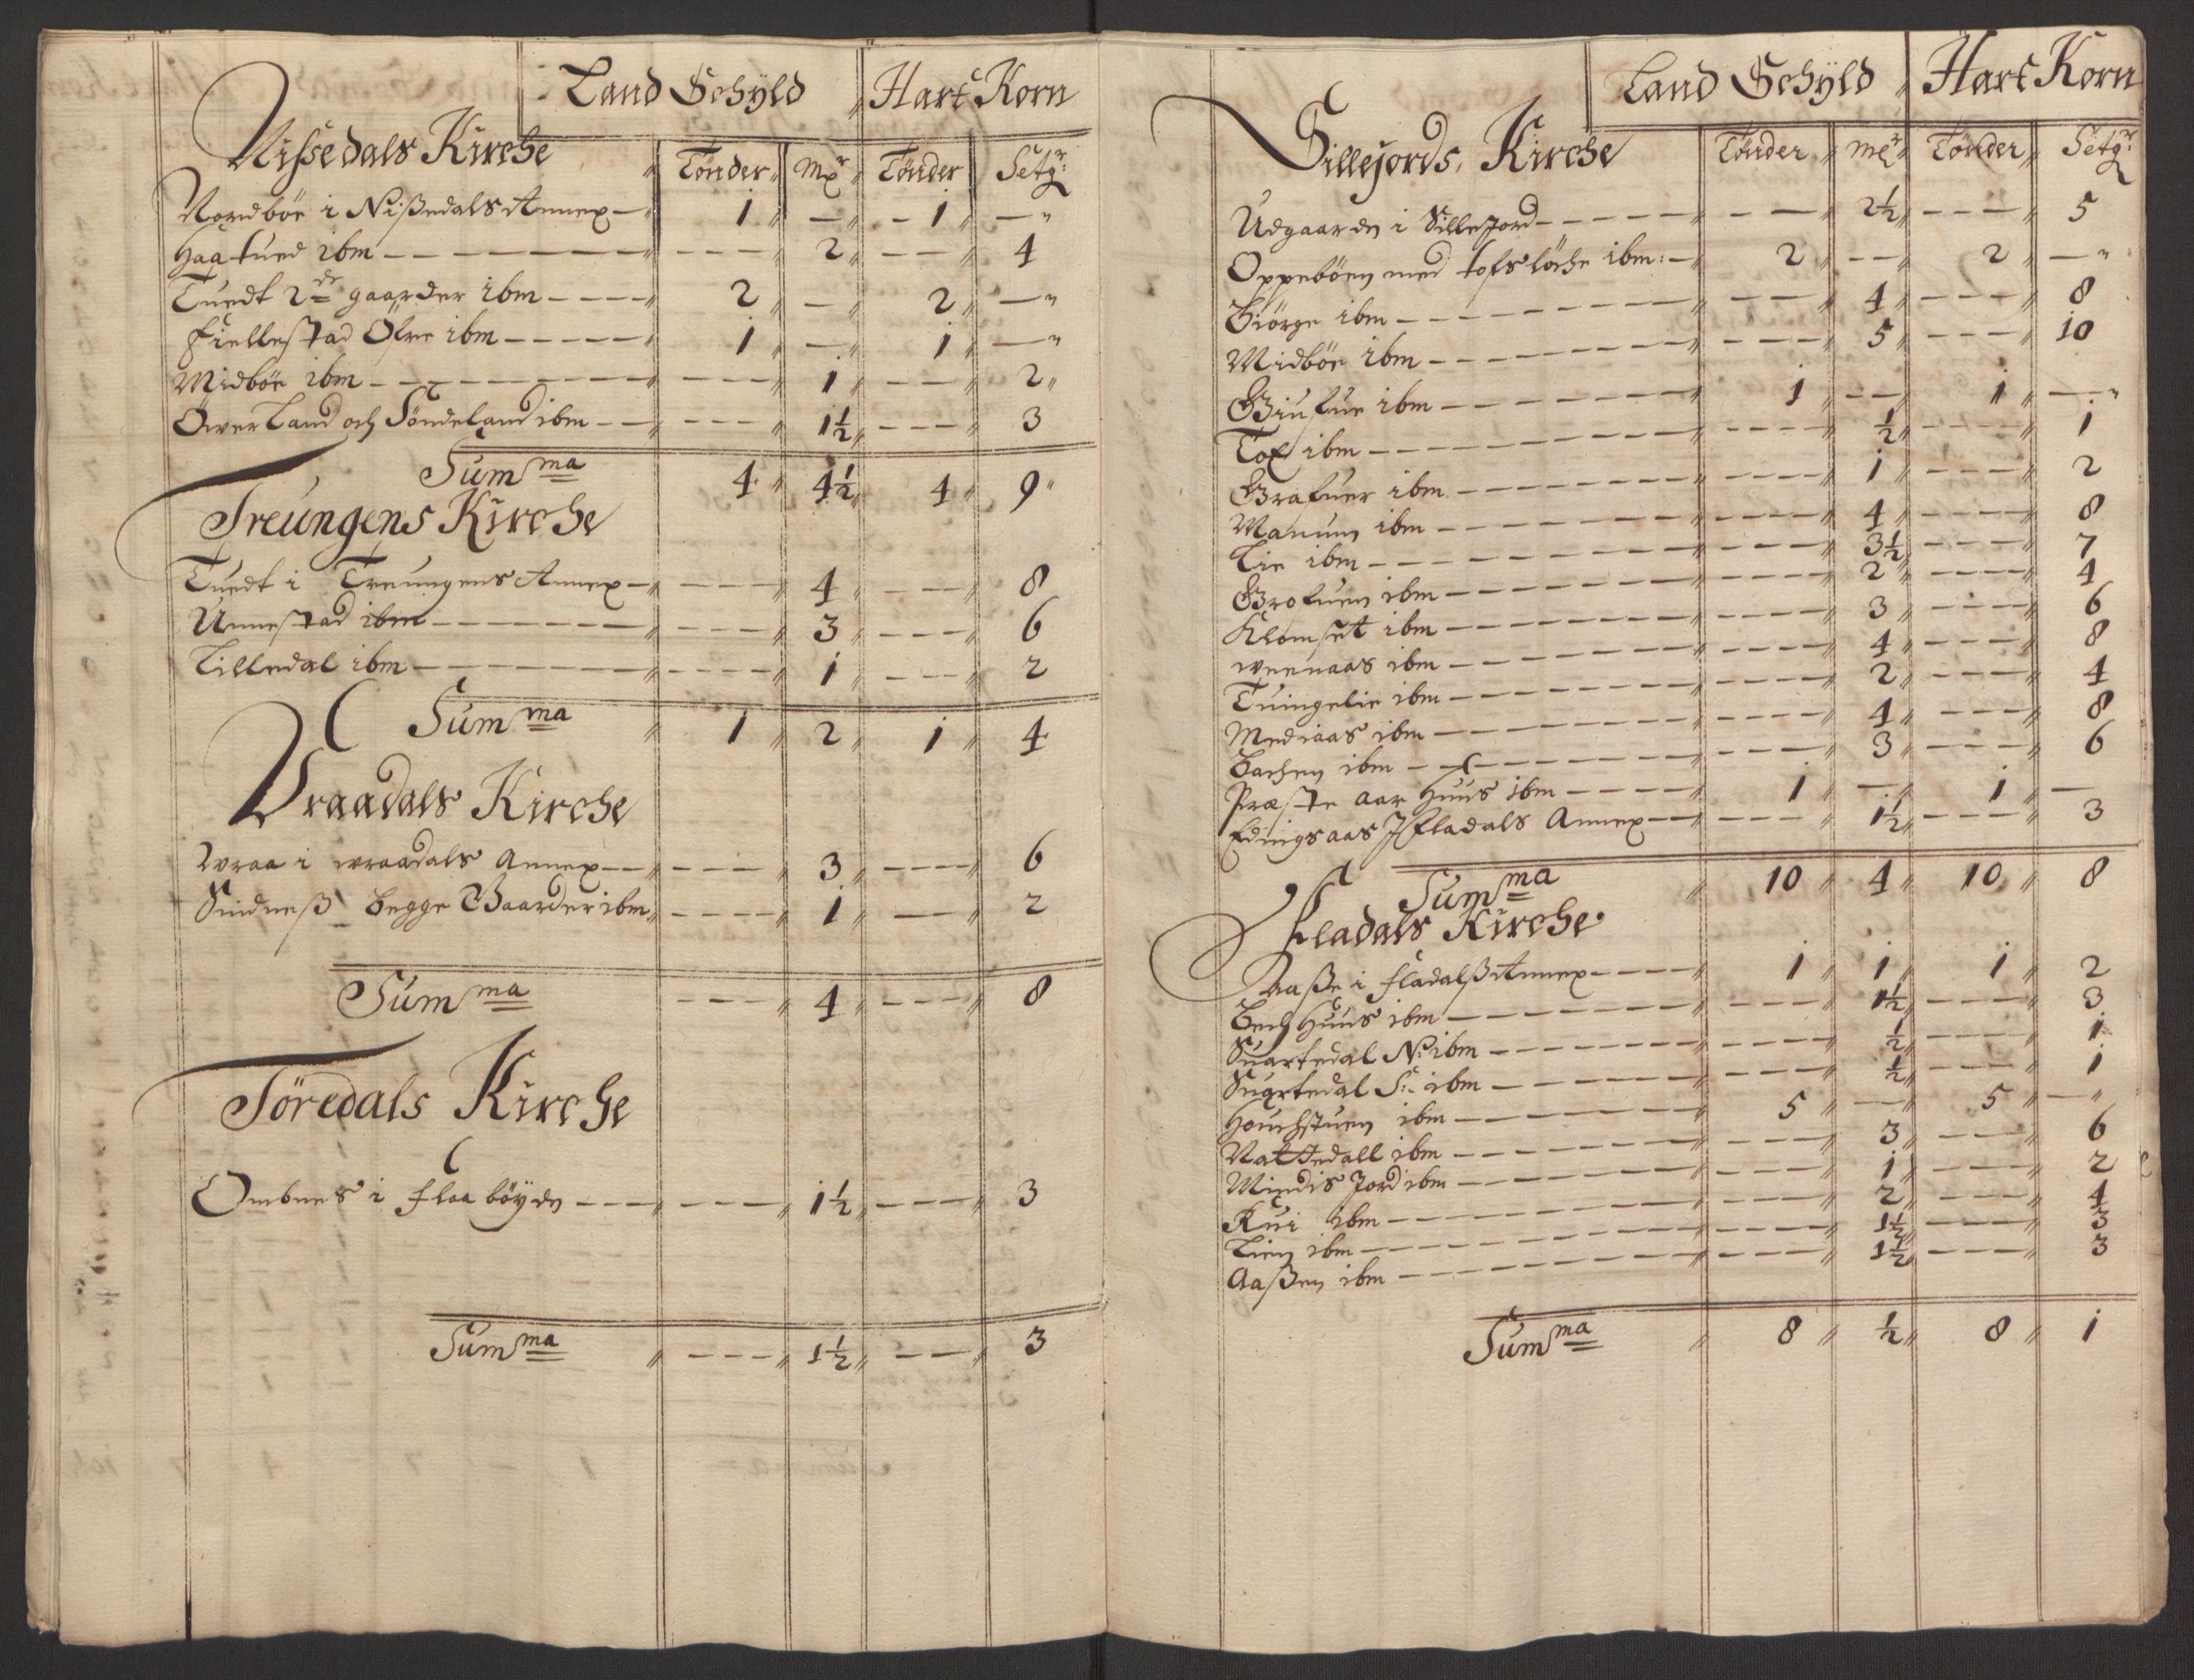 Land Schÿld Hart Korn
Nissedals Kirche Tönder Mxr Tönder Setgr:
Nordböe i Nißedals Annex — 1 — 1 —
Haatued ibm — — 2 — 4
Tuedt 2de gaarder ibm — 2 — 2 —
Fiellestad Öfre ibm — 1 — 1 —
Midböe ibm — — 1 — 2
Öwer Land och Söndeland ibm — — 1½ — 3
Summa 4 4½ 4 9
Treungens Kirche
Tuedt i Treungens Annex — — 4 — 8
Unnestad ibm — — 3 — 6
Lilledal ibm — — 1 — 2
Summa 1 2 1 4
Vraadals Kirche
Wraa i wraadals Annex — — 3 — 6
Sindneß begge Gaarder ibm — 1 — 2
Summa — 4 — 8
Töredals Kirche
Ombnes i flaa böyden — — 1½ — 3
Summa — 1½ — 3
Land Schÿld Hart Korn
Sillejords Kirche Tönder Mxr Tönder Setgr:
Udgaarden i Sillejord — — 2½ — 5
Oppeböen med tofslöche ibm: — 2 — 2 —
Biörge ibm — — 4 — 8
Midböe ibm — — 5 — 10
Giufue ibm — 1 — 1 —
Tof ibm — — ½ — 1
Grafuer ibm — — 1 — 2
Manum ibm — — 4 — 8
Lie ibm — — 3½ — 7
Grofuen ibm — — 2 — 4
Klomset ibm — — 3 — 6
weenaas ibm — — 4 — 8
Tuingelie ibm — — 2 — 4
Mediaas ibm — — 4 — 8
Bachen ibm — — 3 — 6
Præste aar Huus ibm — 1 — 1 —
Edingsaas J Fladals Annex — — 1½ — 3
Summa 10 4 10 8
Fladals Kirche
Aaße i fladalß Annex — 1 1 1 2
Bechhuus ibm — — 1½ — 3
Suartedal N: ibm — — ½ — 1
Suartedal S: ibm — — ½ — 1
Houchstuen ibm — 5 — 5 —
Nattedall ibm — — 3 — 6
Mindis Jord ibm — — 1 — 2
Rui ibm — — 2 — 4
Lien ibm — — 1½ — 3
Aaßen ibm — — 1½ — 3
Summa 8 ½ 8 1